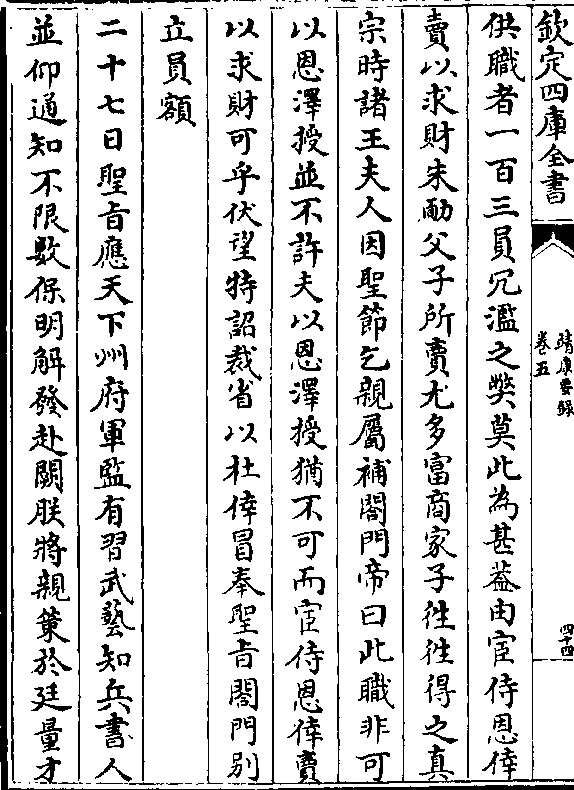 欽定四庫全書
靖康要錄
卷五
四十四
供職者一百三員冗濫之獘莫此為甚葢由宦侍恩倖
賣以求財朱勔父子所賣尤多富商家子徃徃得之真
宗時諸王夫人因聖節乞親屬補閤門帝曰此職非可
以恩澤授並不許夫以恩澤授猶不可而宦侍恩倖賣
以求財可乎伏望特詔裁省以杜倖冒奉聖旨閤門別
立員額
二十七日聖旨應天下州府軍監有習武藝知兵書人
並仰通知不限數保明解發赴闕朕將親策於廷量才